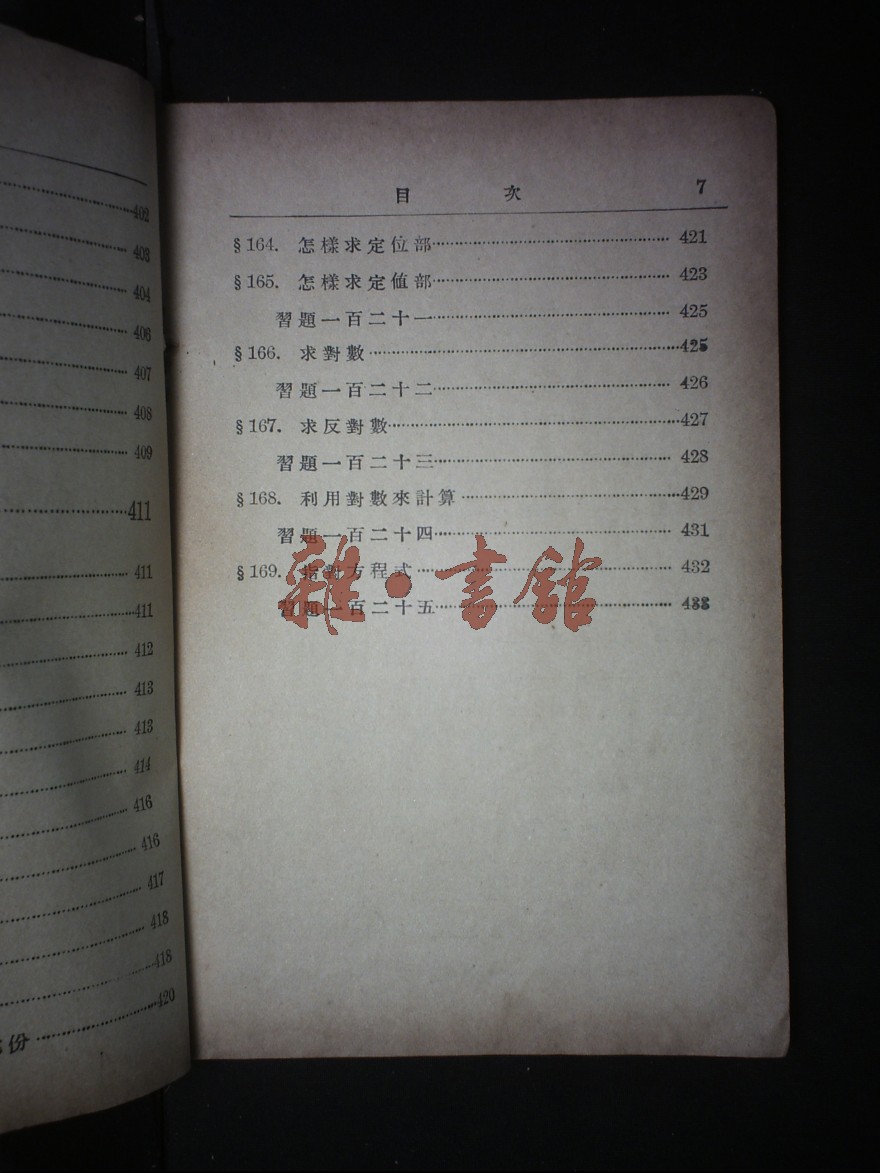 402
403
404
406
407
408
409
411
411
411
412
413
413
414
416
416
417
418
418
份 420
目 次 7
§164. 怎樣求定位部 421
§165. 怎樣求定値部 423
習題一百二十一 425
§166. 求對數 425
習題一百二十二 426
§167. 求反對數 427
習題一百二十三 428
§168. 利用對數來計算 429
習題一百二十四 431
§169. 指對方程式 432
習題一百二十五 433
雜·書館